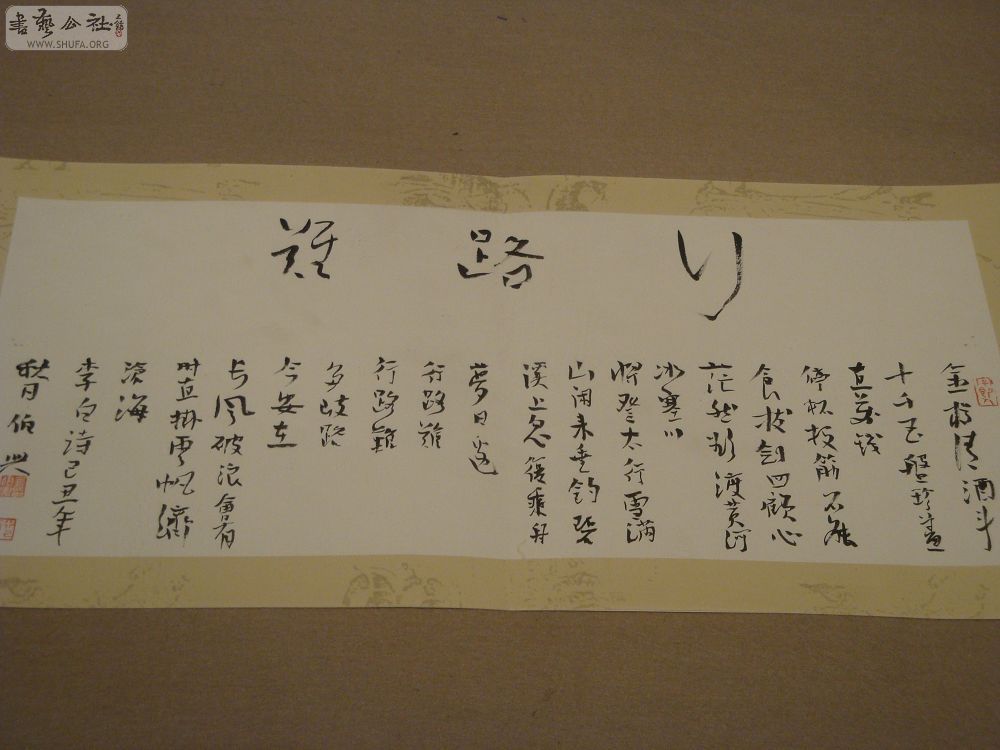 書藝公社
WWW.SHUFA.ORG
行路難
金樽清酒斗
十千玉盤珍羞
直萬錢
停杯投筯不能
食拔劍四顧心
茫然欲渡黃河
冰塞川
將登太行雪滿
山閑來垂釣碧
溪上忽復乘舟
夢日邊
行路難
行路難
多歧路
今安在
長风破浪會有
時直掛雲帆濟
滄海
李白诗己丑年
秋月伯興